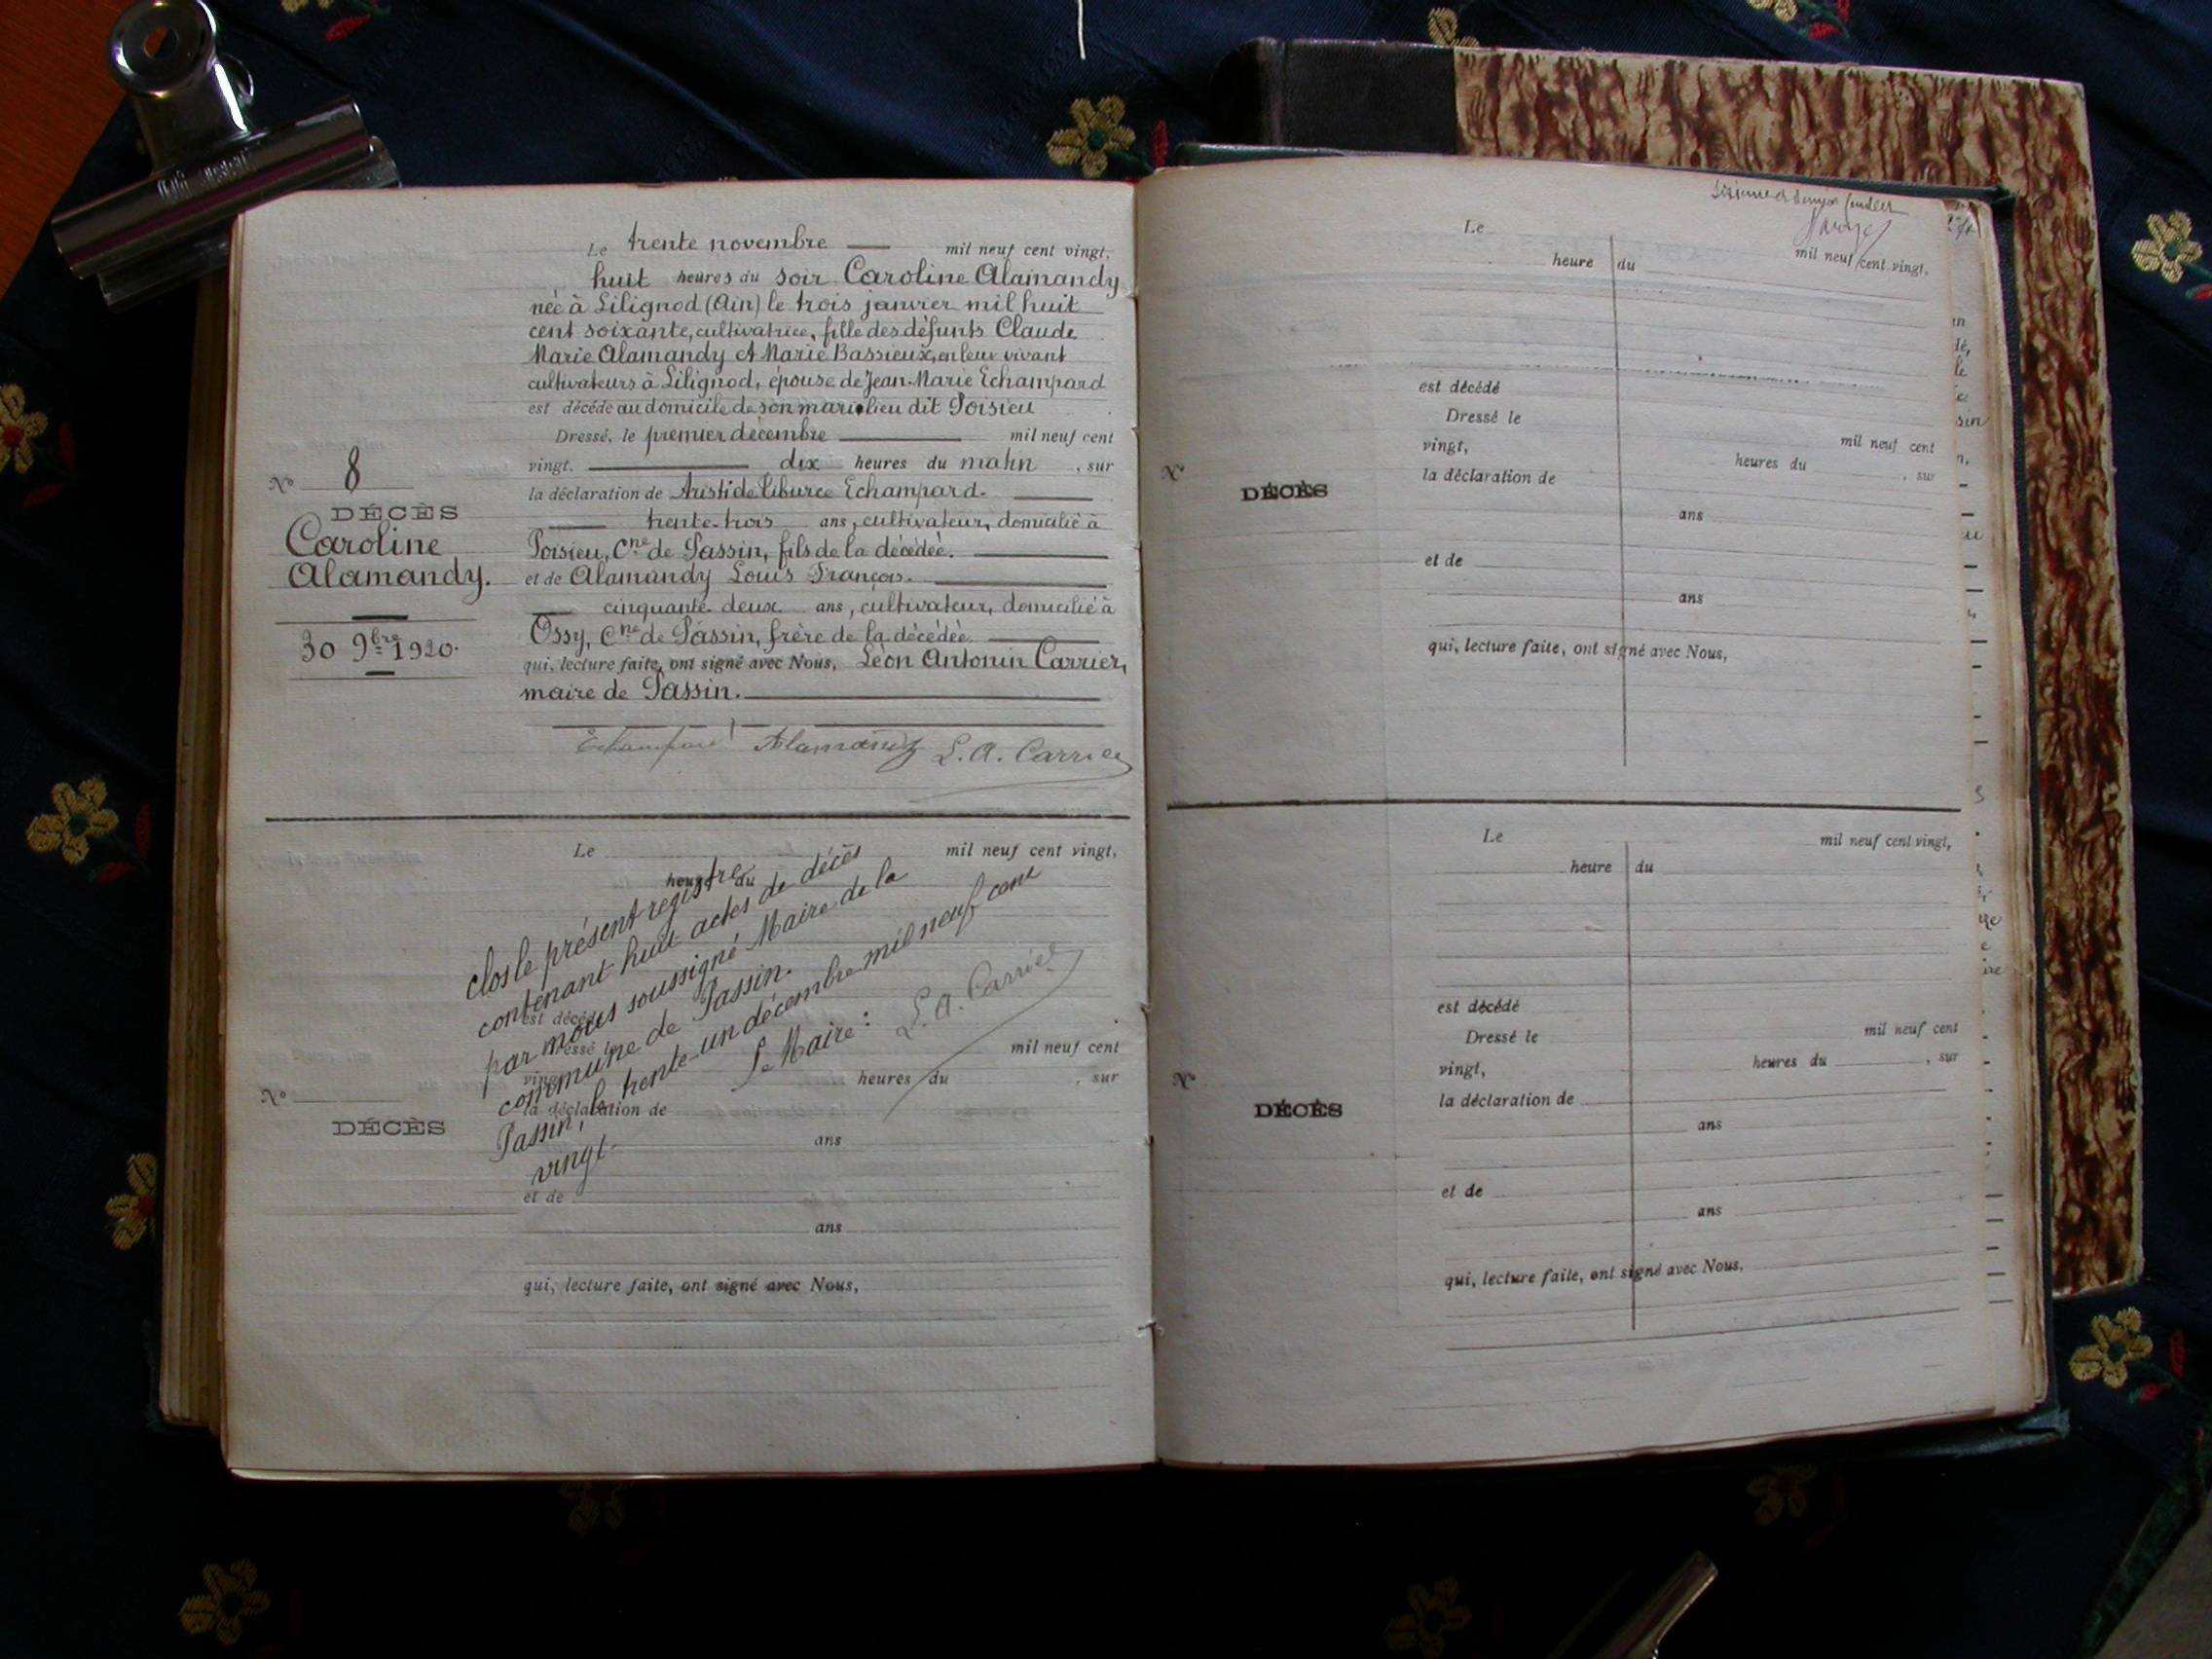 Le trente novembre mil neuf cent vingt,
huit heures du soir Caroline Alamandy
née à Lilignod (Ain) le trois janvier mil huit
cent soixante, cultivatrice, fille des défunts Claude
Marie Alamandy et Marie Bassieux, en leur vivant
cultivateurs à Lilignod, épouse de Jean-Marie Echampard
est décédé au domicile de son mari lieu dit Poisieu
Dressé, le premier décembre mil neuf cent
vingt, dix heures du matin, sur
la déclaration de Aristide Tiburce Echampard.
trente-trois ans, cultivateur, domicilié à
Poisieu, Cne de Passin, fils de la décédée.
et de Alamandy Louis François.
cinquante-deux ans, cultivateur, domicilié à
Ossy, Cne de Passin, frère de la décédée.
qui, lecture faite, ont signé avec Nous, Léon Antonin Carrier,
maire de Passin.
Echampard Alamandy L. A. Carrier
No 8
DÉCÈS
Caroline
Alamandy.
30 9bre 1920.
Le mil neuf cent vingt,
heure du
clos le présent registre
contenant huit actes de décès
par nous soussigné Maire de la
commune de Passin.
Passin, le trente-un décembre mil neuf cent
vingt.
Le Maire : L. A. Carrier
est décédé
Dressé le mil neuf cent
vingt, heures du , sur
la déclaration de
ans
et de
ans
qui, lecture faite, ont signé avec Nous,
No
DÉCÈS
Le mil neuf cent vingt,
heure du
est décédé
Dressé le mil neuf cent
vingt, heures du , sur
la déclaration de
ans
et de
ans
qui, lecture faite, ont signé avec Nous,
No
DÉCÈS
Le mil neuf cent vingt,
heure du
est décédé
Dressé le mil neuf cent
vingt, heures du , sur
la déclaration de
ans
et de
ans
qui, lecture faite, ont signé avec Nous,
No
DÉCÈS